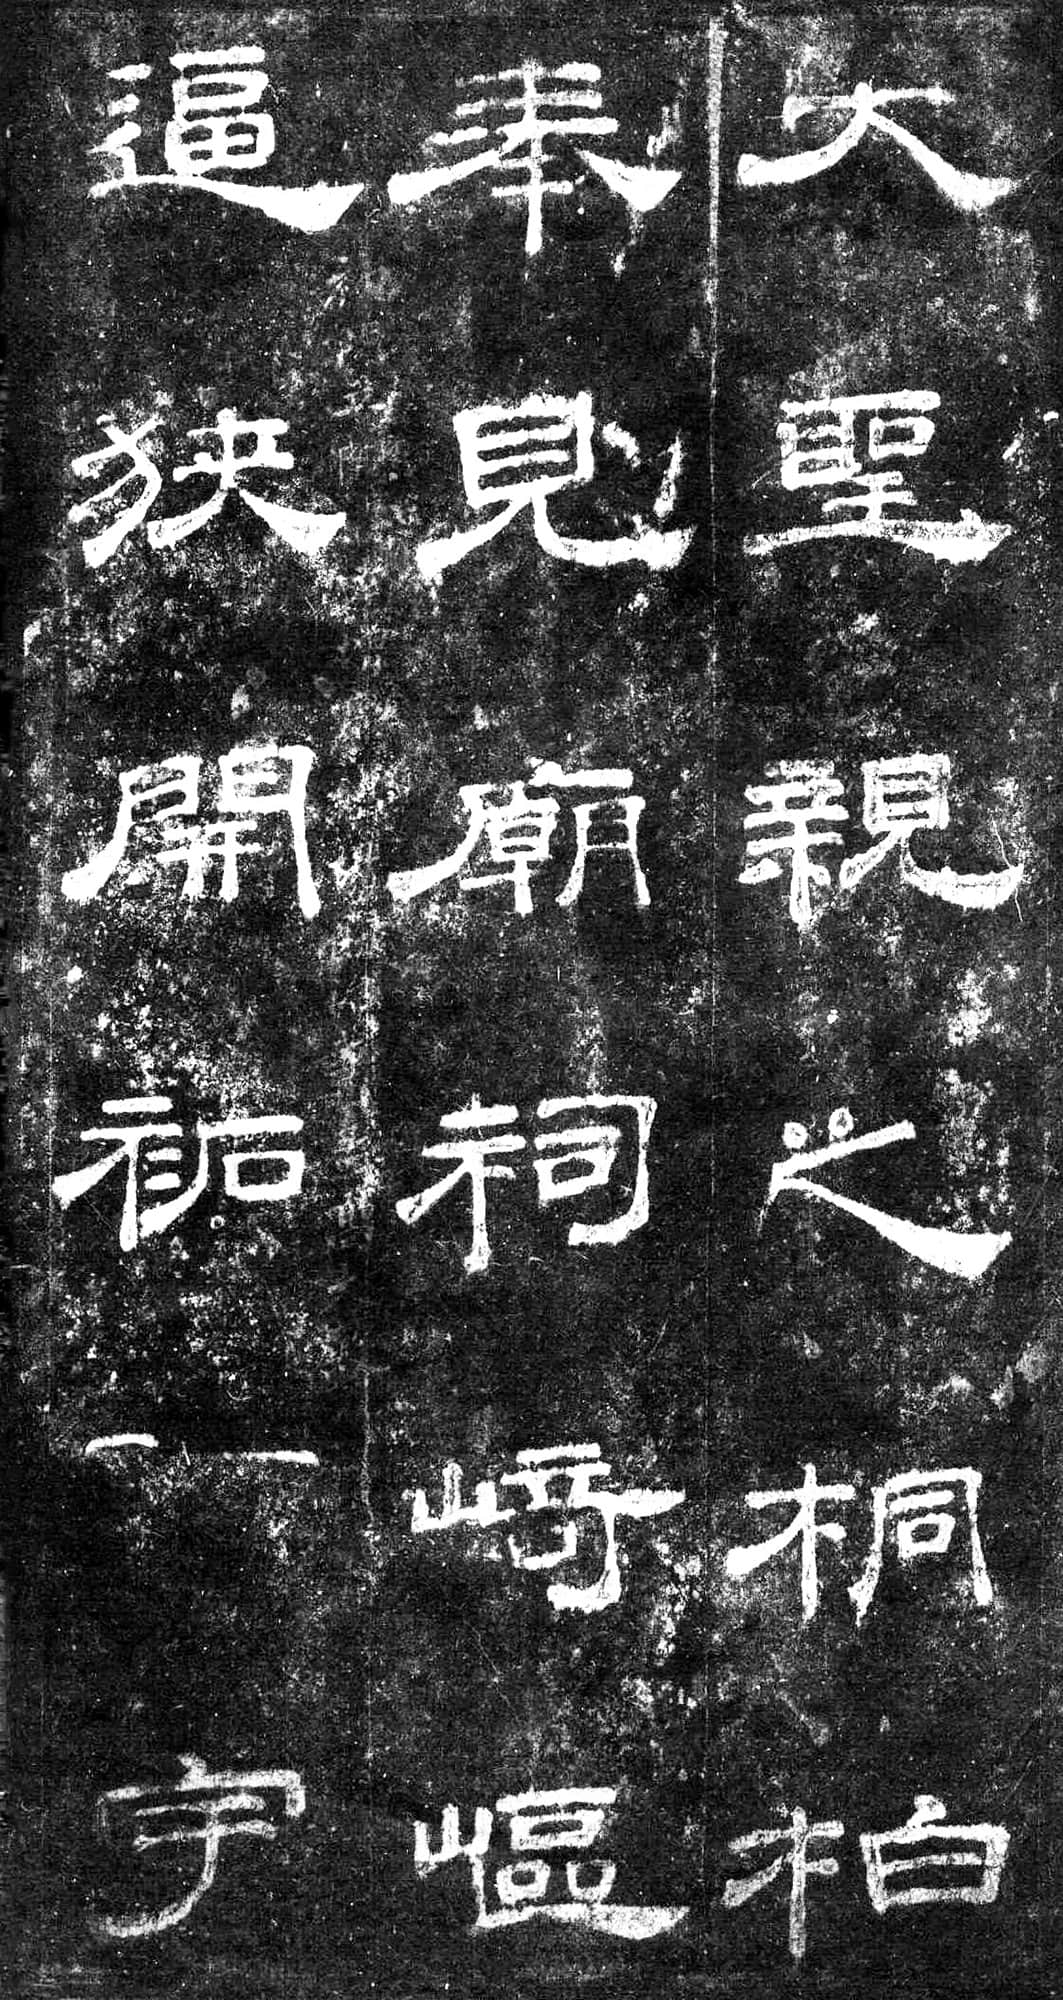 大聖親之桐柏
奉見廟祠崎嶇
逼狹開祏宇